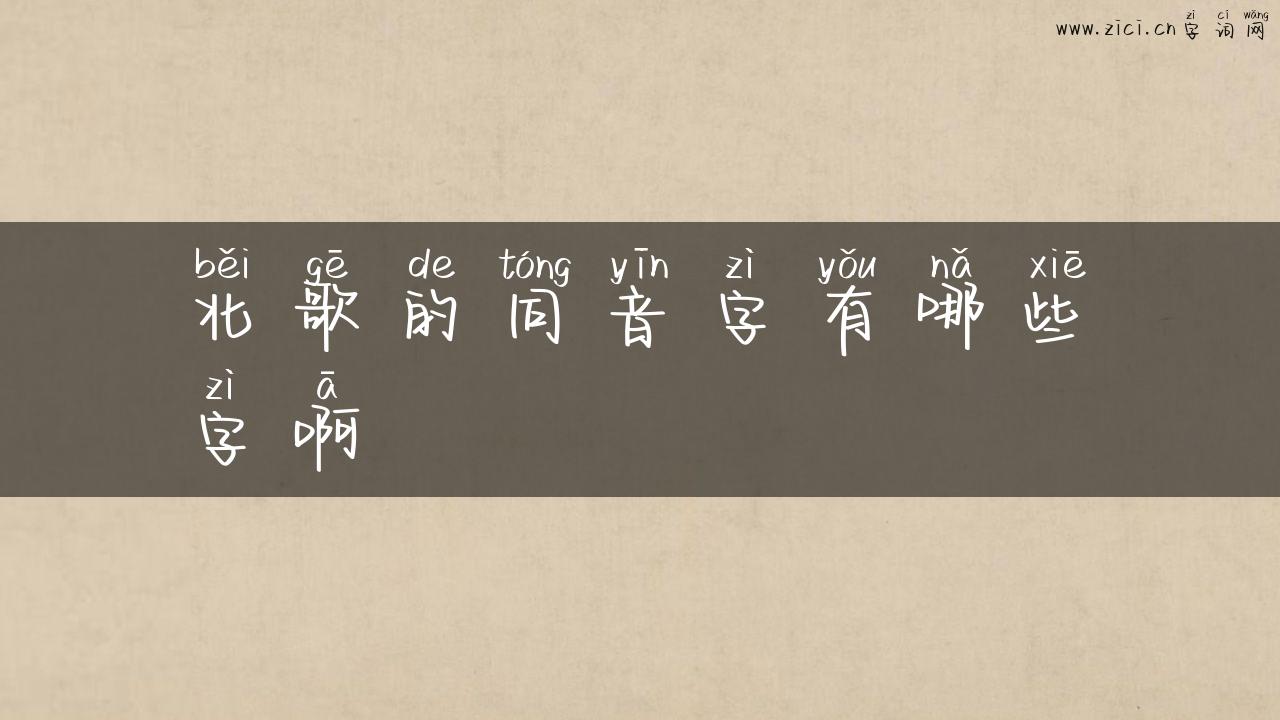 zì cí wǎng
www.zici.cn 字词网
běi gē de tóng yīn zì yǒu nǎ xiē
北歌的同音字有哪些
zì ā
字啊